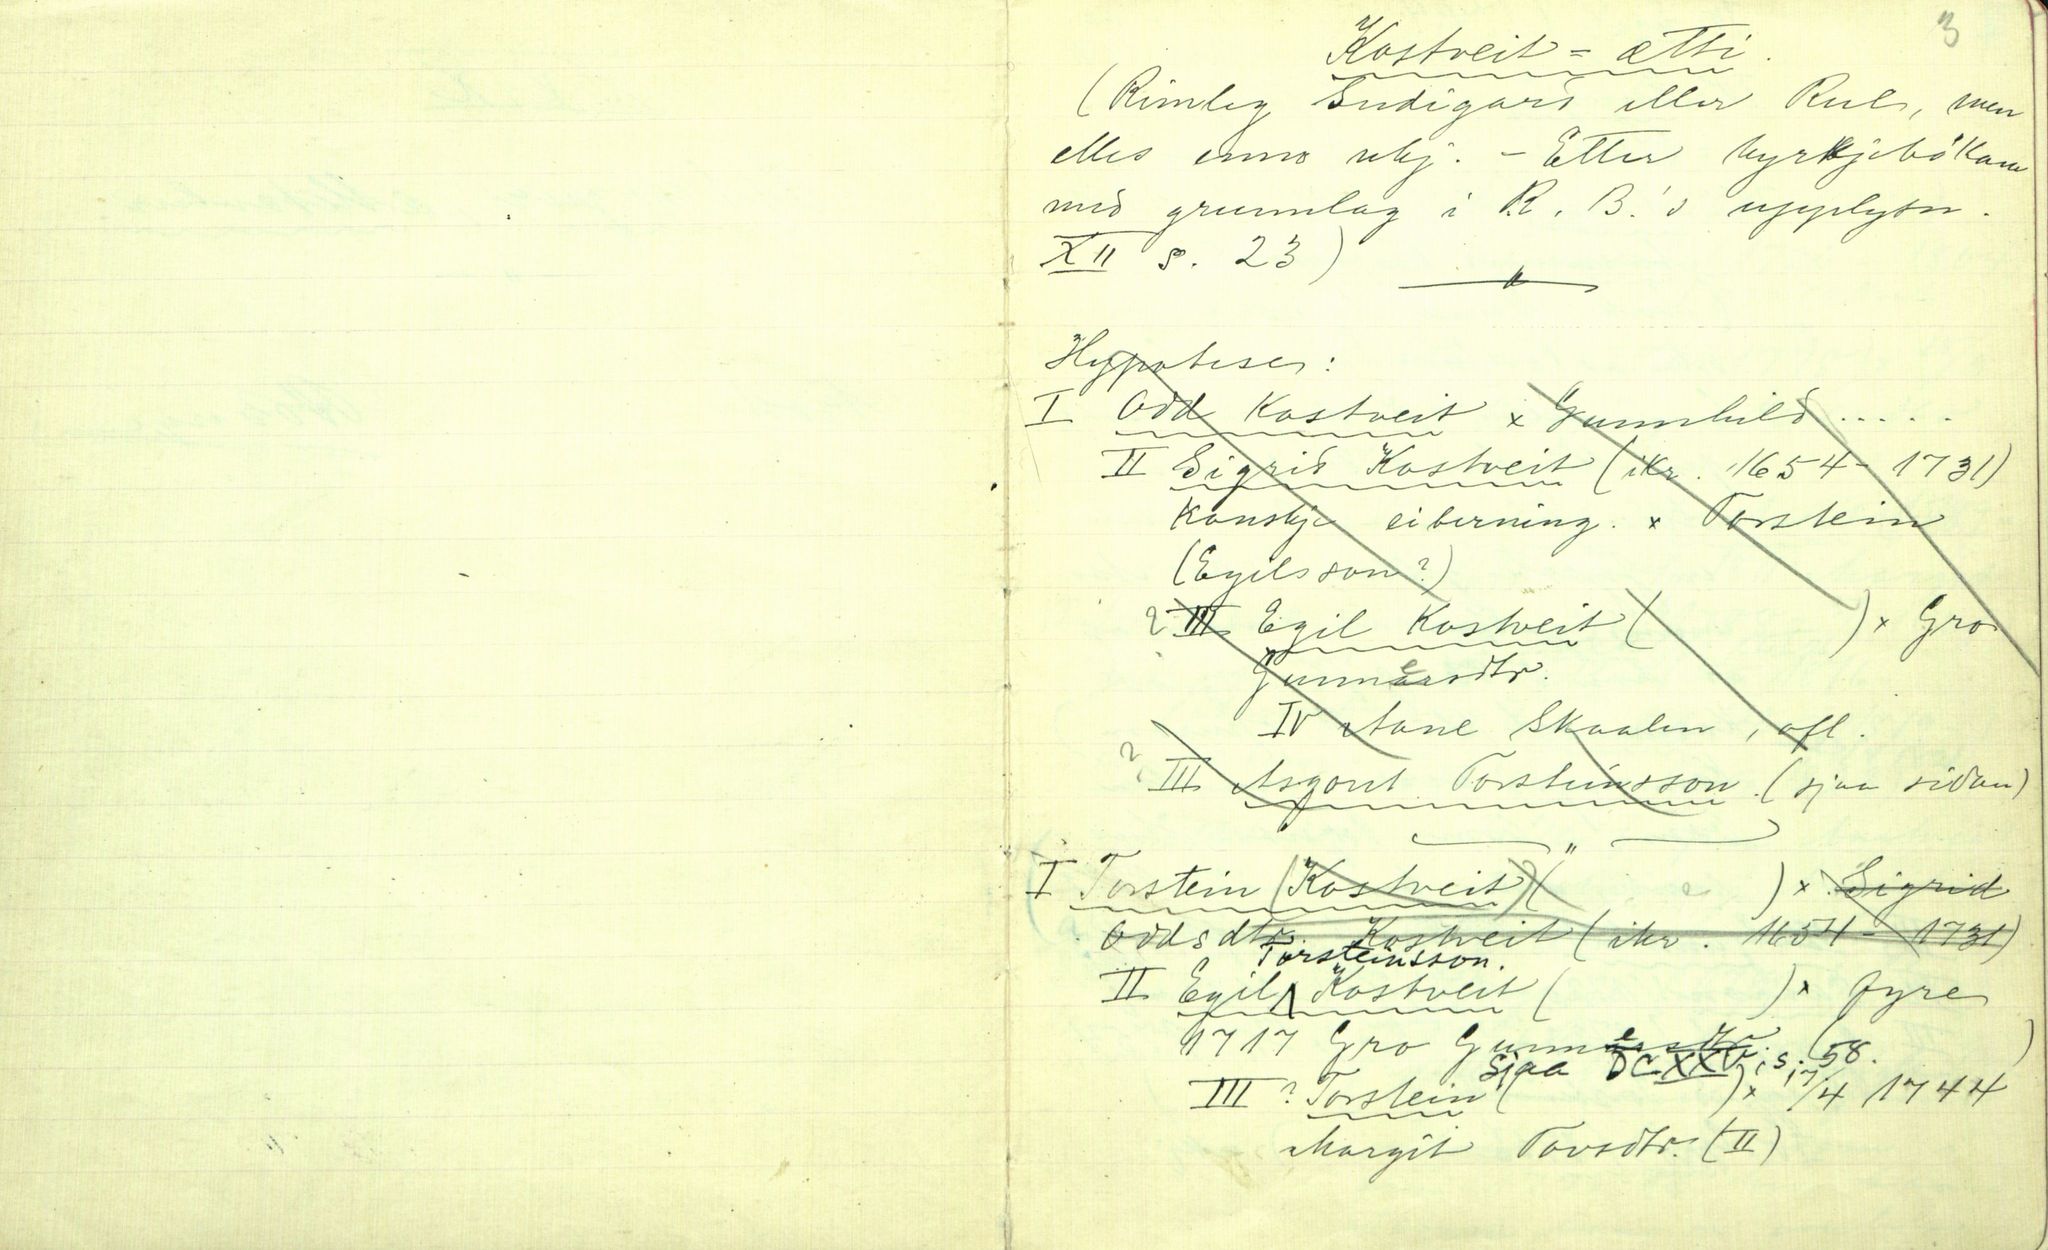 3
Kostveit-ætti.
(Rimleg Sudigard eller Rul, men
elles enno uhj. - Etter kyrkjebókane
med grunnlag i R. B.'s upplysn.
XII s. 23)
Hypoteser:
I Odd Kostveit × Gunnhild .....
II Sigrid Kostveit (ikr. 1654-1731)
Kanskje eiberning. × Torstein
(Egilsson?)
? III Egil Kostveit ( ) × Gro
Gunnarsdtr.
IV Aane Skaalen, ofl.
? III Asgout Torsteinsson (sjaa sidan)
I Torstein (Kostveit) ( ) × Sigrid
Oddsdtr. Kostveit (ikr. 1654-1731)
Torsteinsson.
II Egil Kostveit ( ) × fyre
1717 Gro ( )
Sjaa DCXXV, s. 58.
III ? Torstein ( ) × 17/4 1744
Margit Tovsdtr. (II)